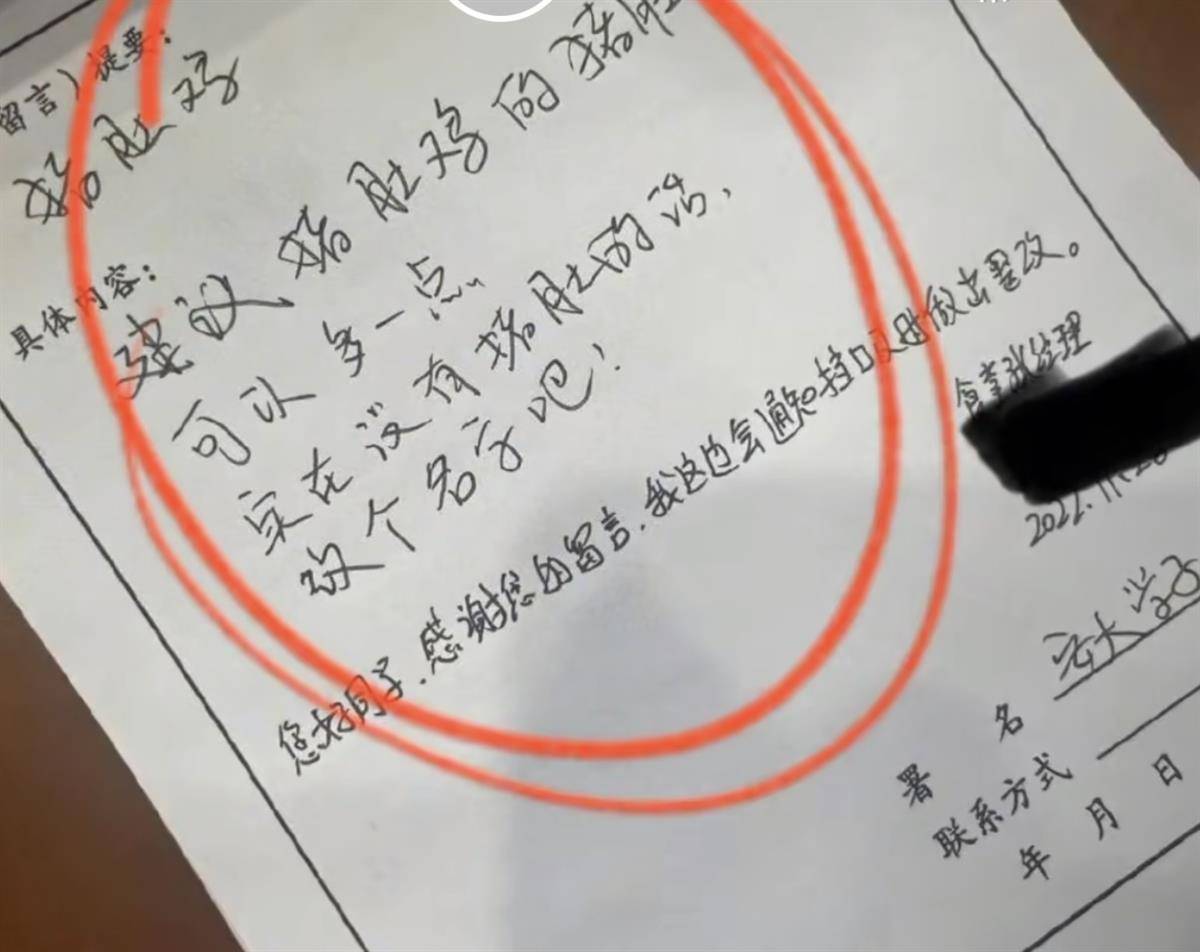 留言）提要：
猪肚鸡
具体内容：
建议猪肚鸡的猪肚
可以多一点
实在没有猪肚的话，
改个名字吧！
您好同学，感谢您的留言，我这边会通知挡口及时做出整改。
食堂张经理
2022.11.28
署名 云大学子
联系方式
年 月 日